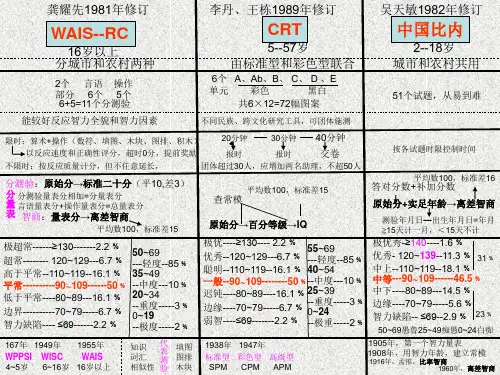 龚耀先1981年修订
WAIS--RC
16岁以上
分城市和农村两种
2个 言语 操作
部分 6个 5个
6+5=11个分测验
能较好反应智力全貌和智力因素
限时：算术+操作（数符、填图、木块、图排、积木
以反应速度和正确性评分，超时0分，提前奖励
不限时：按反应质量计分，但不任意延长，
分测验：原始分→标准二十分（平10,差3）
分量表
分测验量表分相加=分量表分
言语量表分+操作量表分=总量表分
智商：量表分→高差智商
平均数100，标准差15
极超常------≥130-------2.2 %
超常------- 120~129---6.7 %
高于平常--110~119--16.1 %
平常--------90~109------50 %
低于平常---80~89---16.1 %
边界--------70~79-----6.7 %
智力缺陷---- ≤69-----2.2 %
50~69
---轻度--85 %
35~49
---中度---10 %
20~34
---重度-----3 %
0~19
---极重-----2 %
167年 1949年 1955年
WPPSI WISC WAIS
4~5岁 6~16岁 16岁以上
知识
词汇
相似性
代表测验
填图
图排
木块
李丹、王栋1989年修订
CRT
5--57岁
由标准型和彩色型联合
6个 A、Ab、B、 C、 D 、E
单元 彩色 黑白
共6×12=72幅图案
不同民族、跨文化研究工具，可团体施测
20分钟 —— 30分钟 —— 40分钟
报时 报时 交卷
团体超过30人，应增加两名助理，不超50人
平均数100，标准差15
查常模
原始分→百分等级→IQ
极优----≥130---- 2.2 %
优秀--120~129---6.7 %
聪明--110~119--16.1 %
一般--90~109-------50 %
迟钝----80~89---16.1 %
边缘----70~79-----6.7 %
弱智------≤69-----2.2 %
55~69
---轻度--85 %
40~54
---中度---10 %
25~39
---重度-----3 %
0~24
---极重-----2 %
1938年 1947年
标准型 彩色型 高级型
SPM CPM APM
吴天敏1982年修订
中国比内
2--18岁
城市和农村共用
51个试题，从易到难
按各试题时限控制时间
平均数100，标准差16
答对分数+补加分数
原始分+实足年龄→高差智商
测验年月日—出生年月日=年月
≥15天计一月，＜15天不计
极优秀-≥140-----1.6 %
优秀- 120~139--11.3 %
中上--110~119---18.1 %
31 %
中等---90~109-----46.5 %
中下-----80~89---14.5 %
边缘----70~79-----5.6 %
智力缺陷-- ≤69---2.9 %
23 %
50~69愚鲁25~49痴愚0~24白痴
1905年，第一个智力量表
1908年，用智力年龄，建立常模
1916年，孟推，比率智商
1960年，高差智商